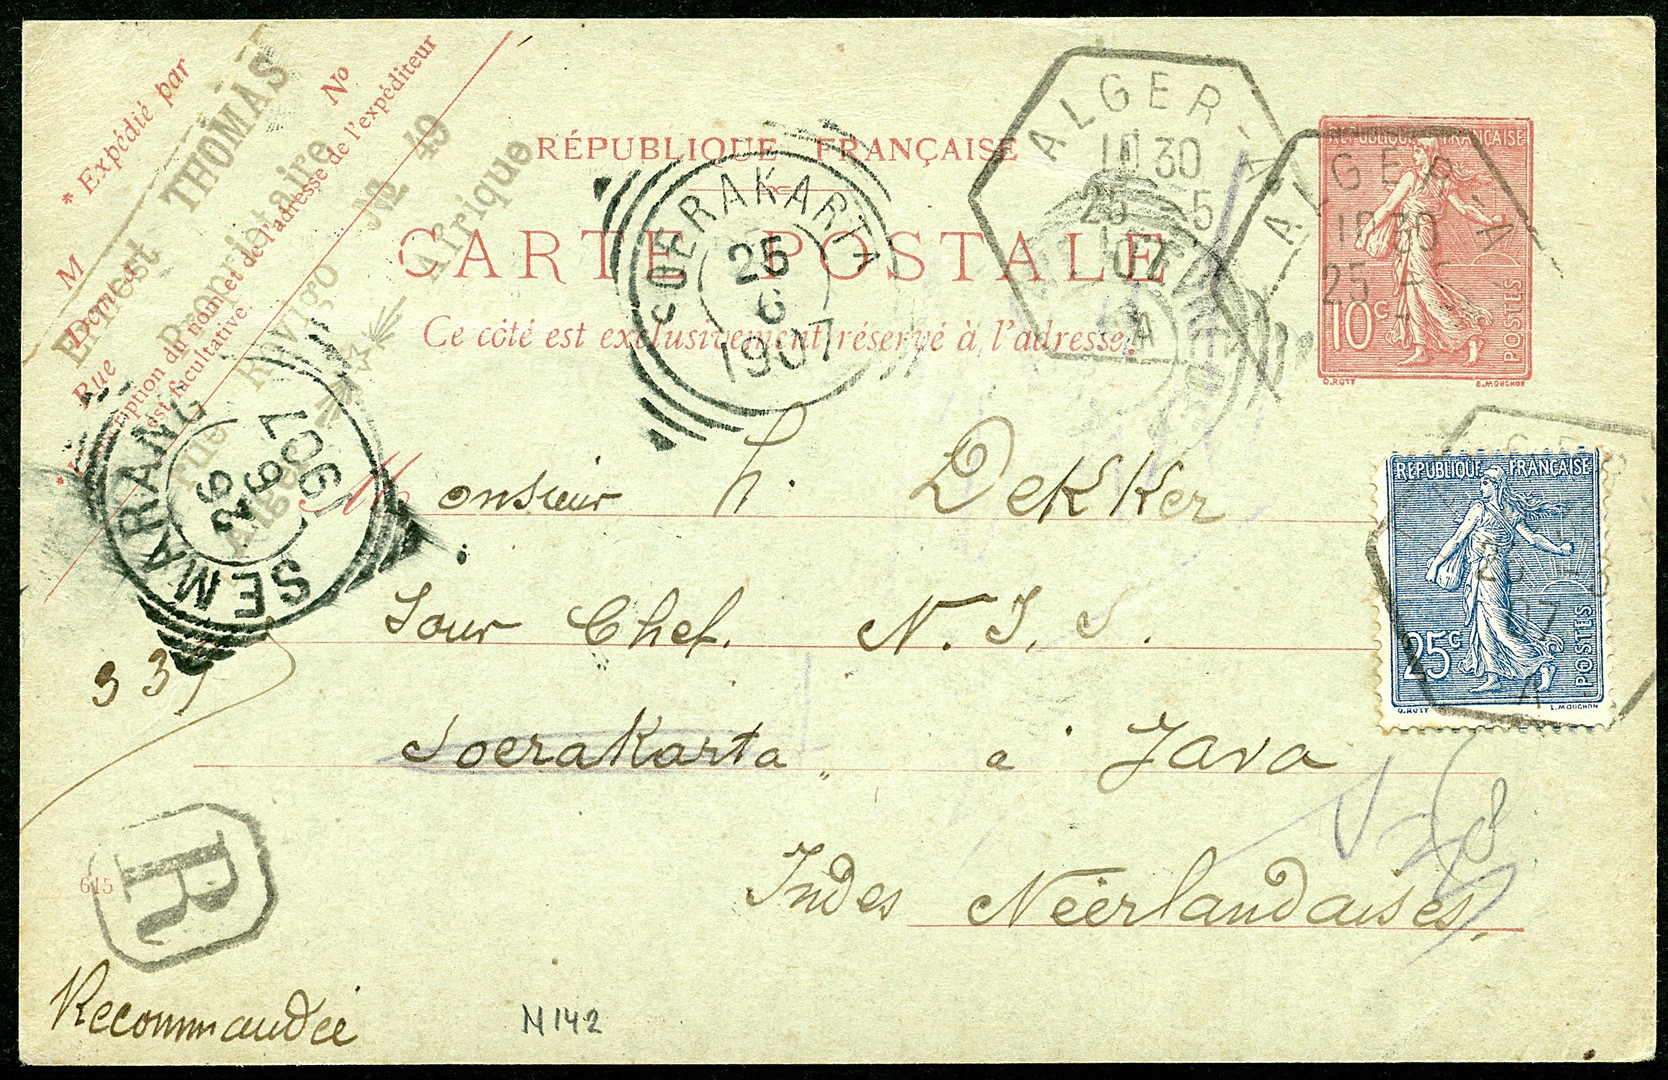 * Expédié par
M
Demeurant
Rue
No
* L'inscription du nom et de l'adresse de l'expéditeur
est facultative.
Ernest THOMAS
Propriétaire
Rue Rovigo № 49
Alger Afrique
RÉPUBLIQUE FRANÇAISE
CARTE POSTALE
Ce côté est exclusivement réservé à l'adresse.
SOERAKARTA
25
6
1907
ALGER-A
10 30
25 -5
07
ALGER-A
10 30
25 -5
RÉPUBLIQUE FRANÇAISE
10c
POSTES
O.ROTY E.MOUCHON
SEMARANG
26
6
1907
RÉPUBLIQUE FRANÇAISE
25c
POSTES
O.ROTY L.MOUCHON
07
Monsieur h. Dekker
Sour Chef. N. I. S.
Soerakarta „ a Java
Indes Néérlandaises.
335
R
615
Recommandée
M142